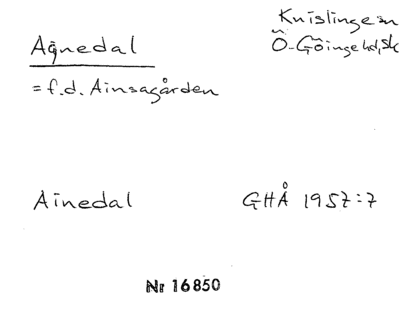 Knislinge sn
Agnedal Ö-Göinge hd, Sk
= f.d. Ainsagården
Ainedal GHÅ 1957:7
Nr 16850